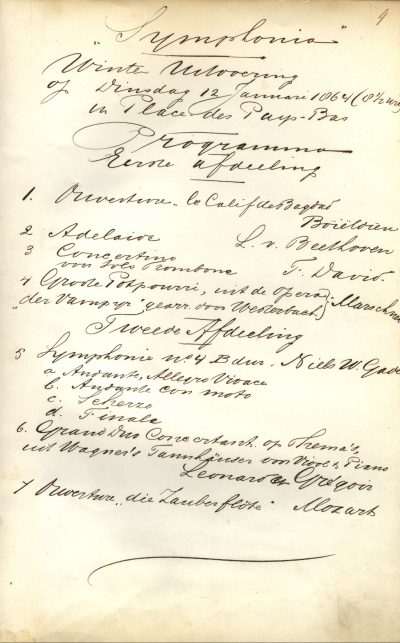 4
"Symphonia"
Winter Uitvoering
op Dinsdag 12 Januari 1864 (8½ uur)
in Place des Pays-Bas
Programma
Eerste afdeeling
1. Ouverture "le Calif de Bagdad
Boiëldieu
2 Adelaide L. v. Beethoven
3 Concertino
voor Solo Trombone F. David.
4 Groote Potpourri, uit de opera
"der Vampyr" gearr. door Westerbach. Marschner
Tweede Afdeeling
5 Symphonie no 4 B dur - Niels W. Gade
a Andante, Allegro Vivace
b. Andante con moto
c. Scherzo
d. Finale
6. Grand Duo Concertant op Thema's,
uit Wagner's Tannhäuser voor Viool & Piano
Leonard & Grégoir
7 Ouverture "die Zauberflöte" Mozart